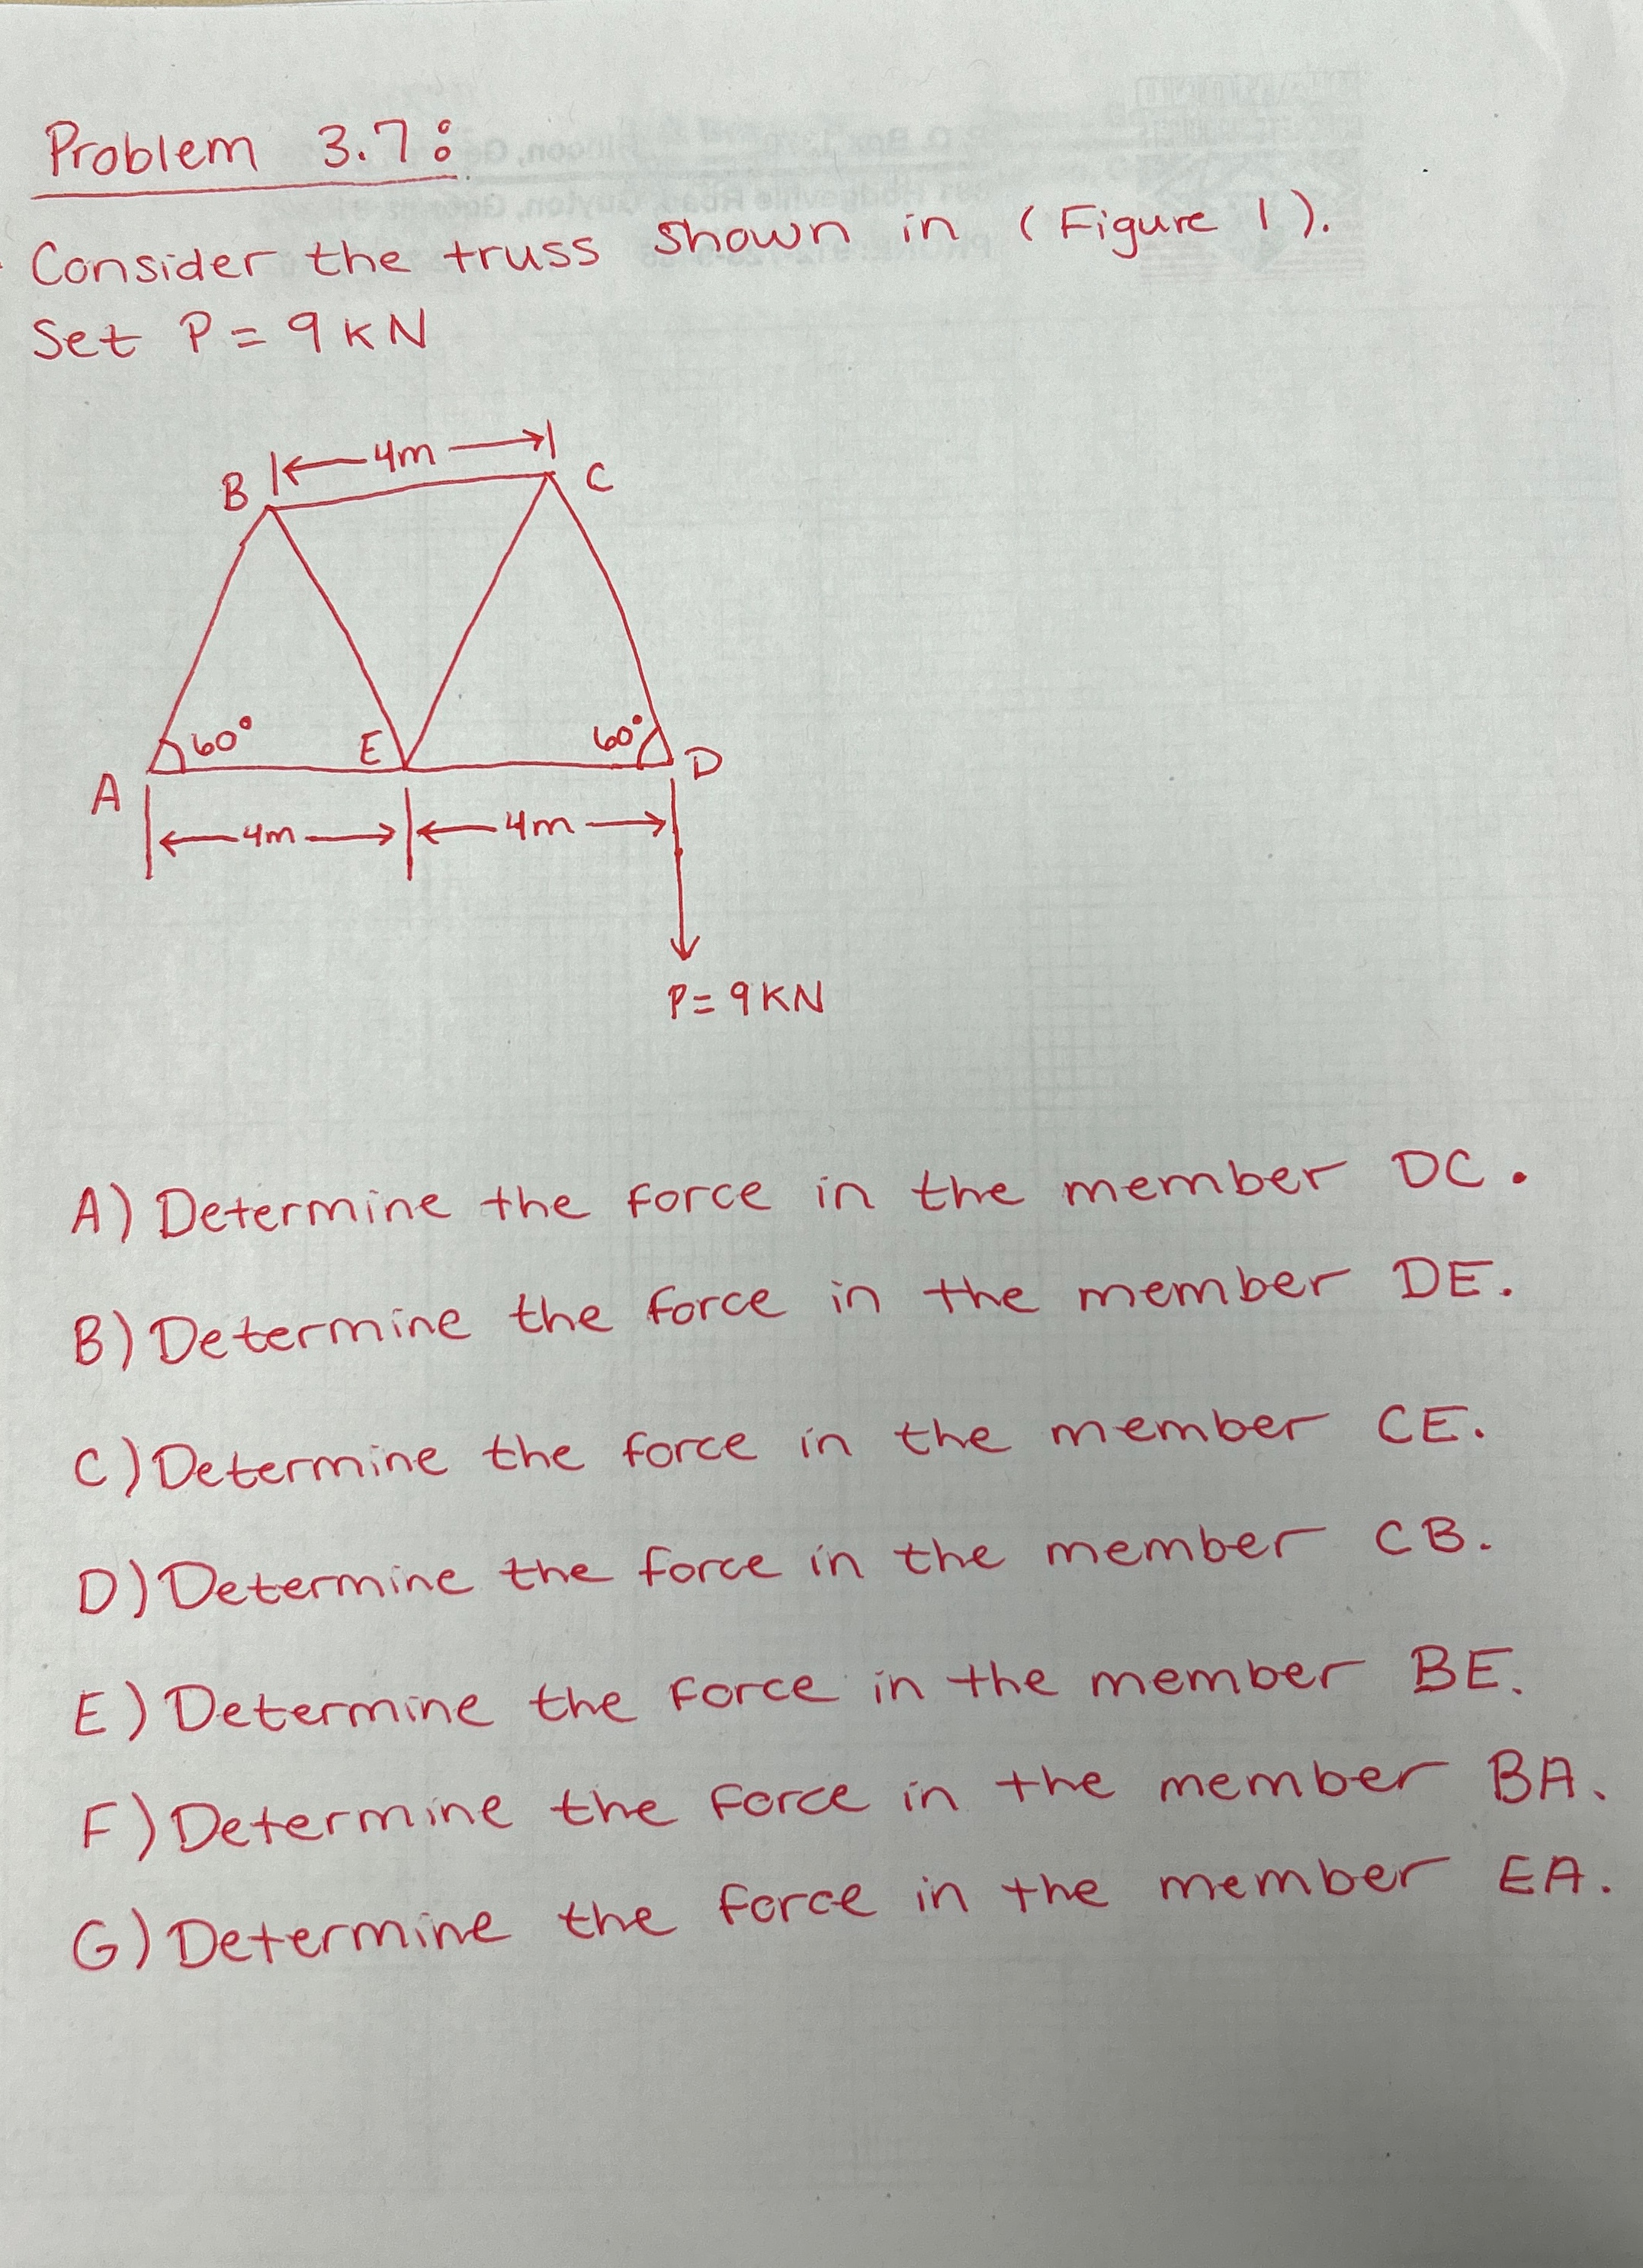 Problem 3.7:
Consider the truss shown in (Figure 1).
Set P = 9 KN
4m
B
C
60°
E
60°
D
A
4m
4m
P = 9 KN
A) Determine the force in the member DC.
B) Determine the force in the member DE.
C) Determine the force in the member CE.
D) Determine the force in the member CB.
E) Determine the force in the member BE.
F) Determine the force in the member BA.
G) Determine the force in the member EA.